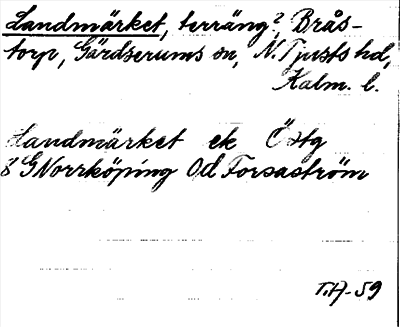 Landmärket, terräng?, Brås-
torp, Gärdserums sn, N. Tjusts hd,
Kalm. l.
Landmärket ek Östg
8 GNorrköping Od Forsaström
T.A-59